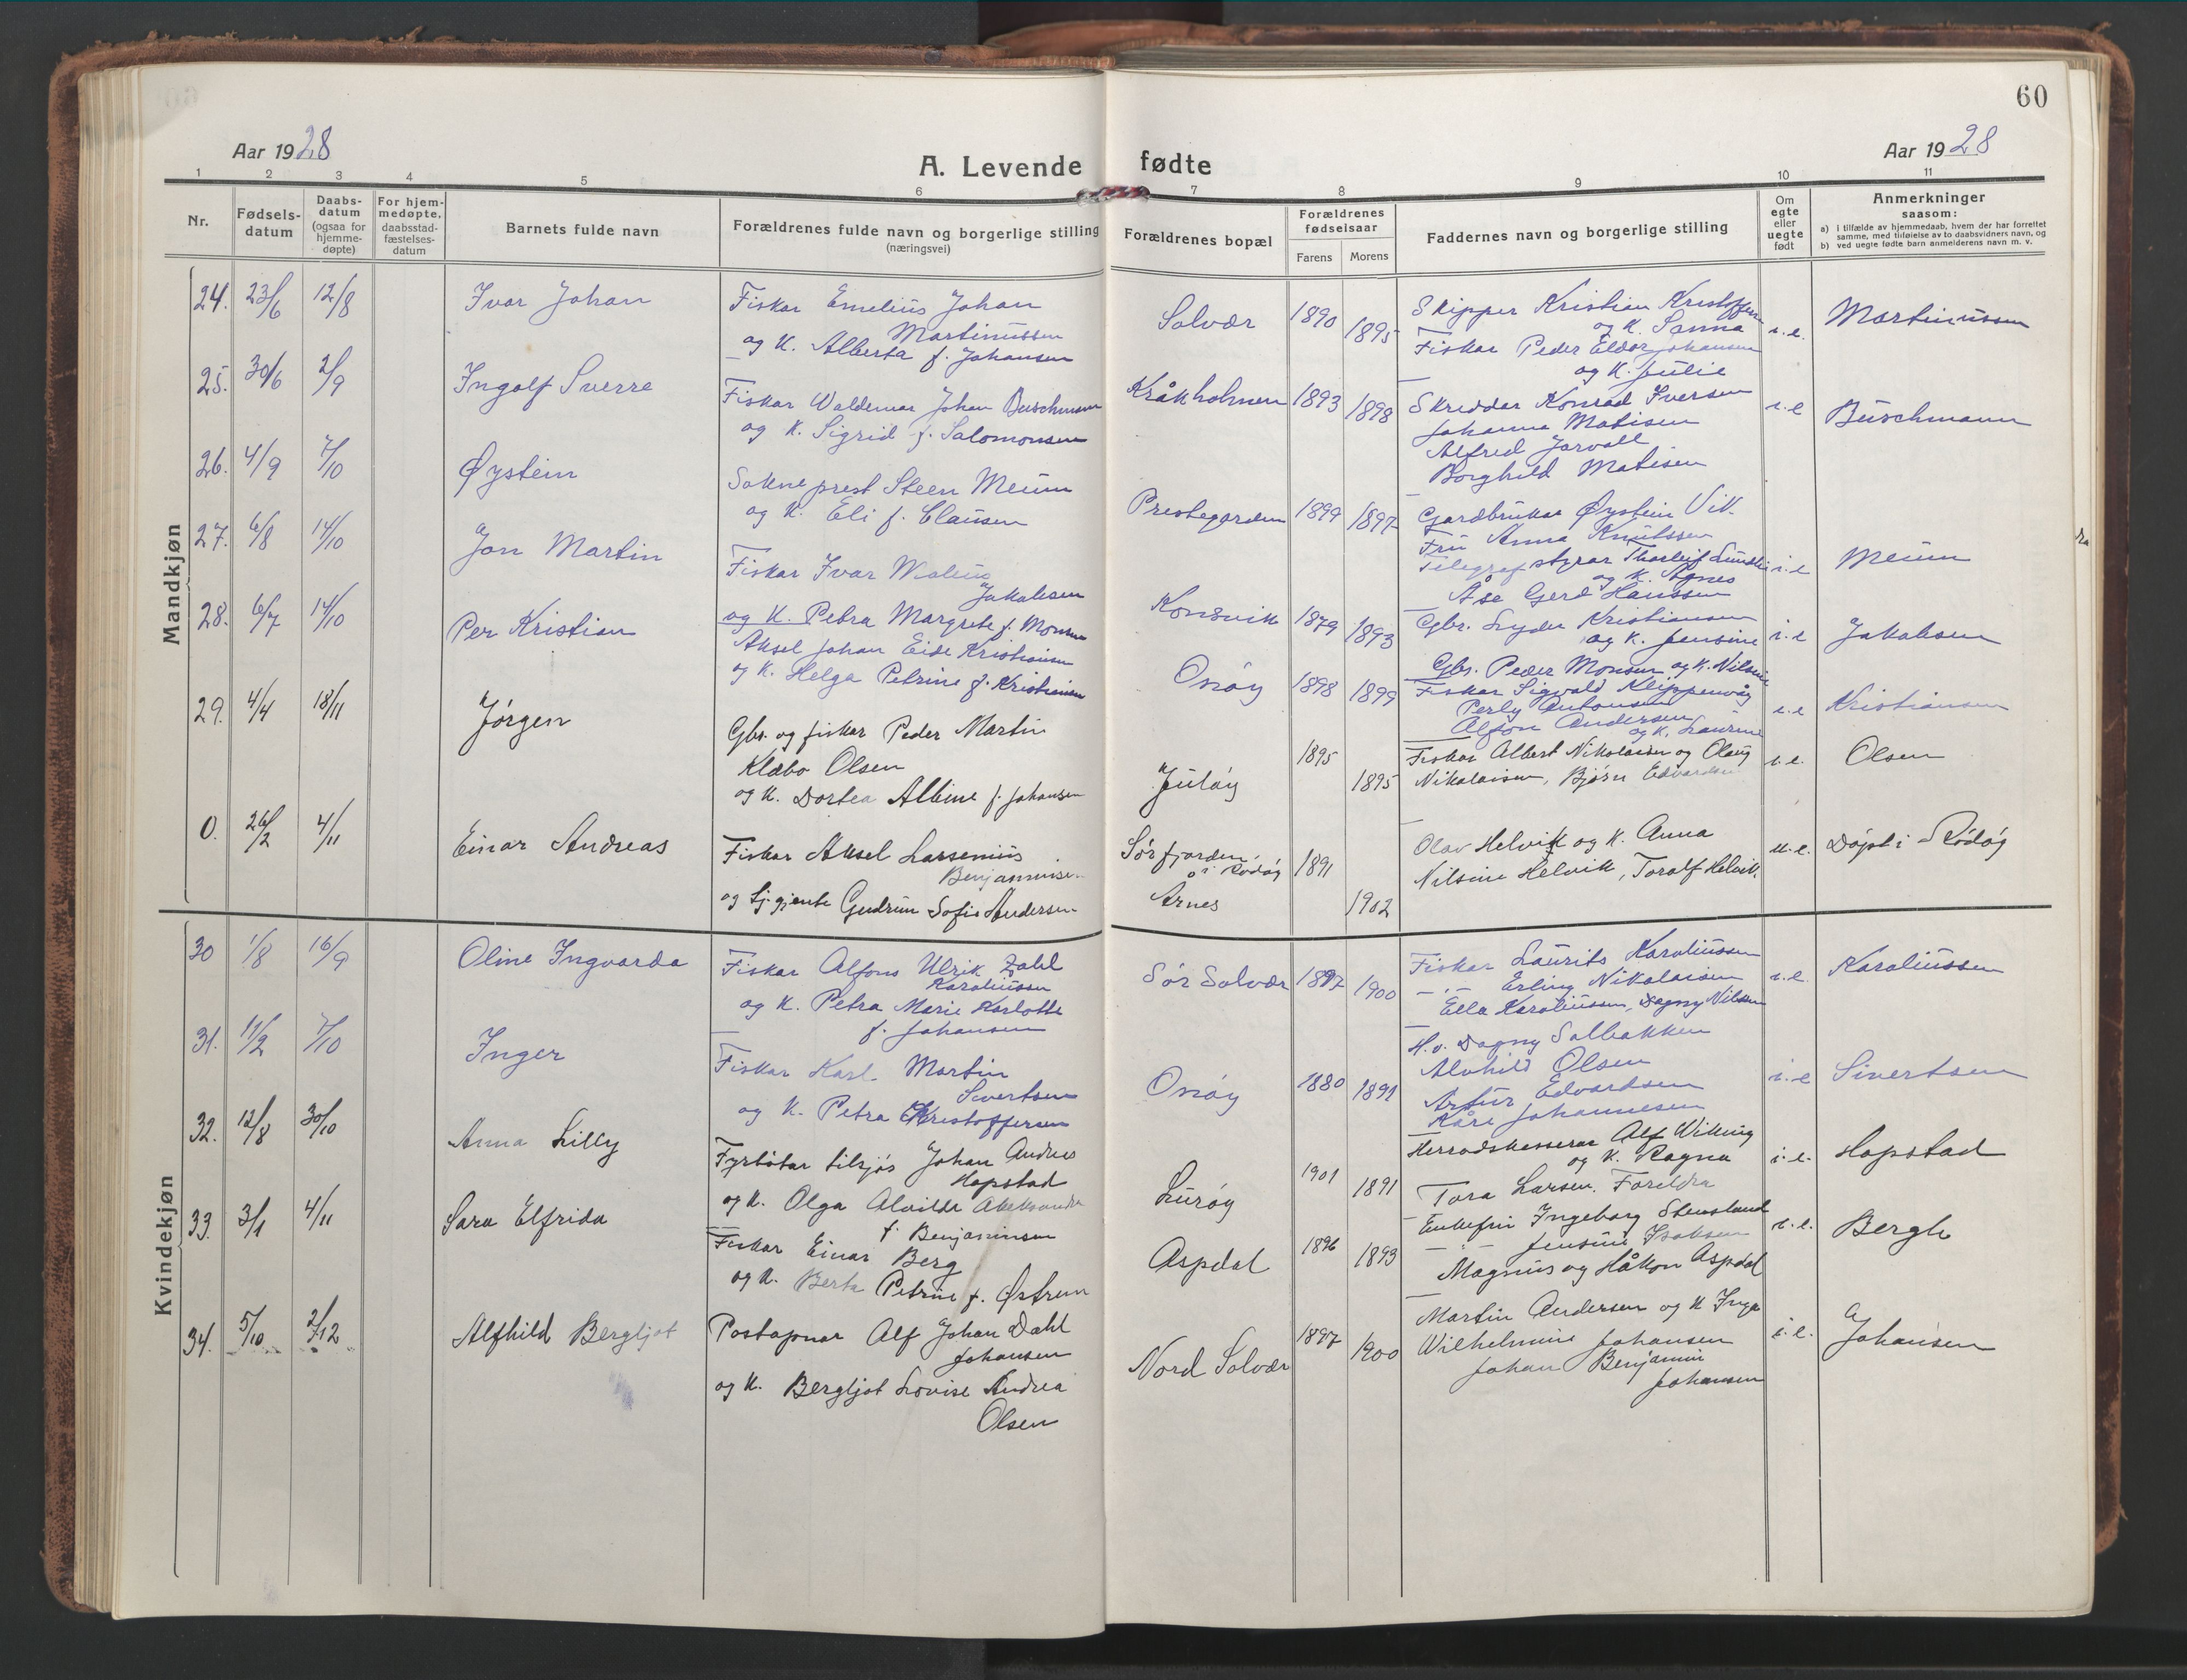 60
Aar 1928
A. Levende fødte
Aar 1928
1 2 3 4 5 6 7 8 9 10 11
Nr.
Fødsels-
datum
Daabs-
datum
(ogsaa for
hjemme-
døpte)
For hjem-
medøpte,
daabsstad-
fæstelses-
datum
Barnets fulde navn
Forældrenes fulde navn og borgerlige stilling
(næringsvei)
Forældrenes bopæl
Forældrenes
fødselsaar
Farens Morens
Faddernes navn og borgerlige stilling
Om
egte
eller
uegte
født
Anmerkninger
saasom:
a) i tilfælde av hjemmedaab, hvem der har forrettet
samme, med tilføielse av to daabsvidners navn, og
b) ved uegte fødte barn anmelderens navn m. v.
Mandkjøn
24. 23/6 12/8 Ivar Johan
Fiskar Emelius Johan
Martinussen
og K. Alberta f. Johansen
Solvær 1890 1895
Skipper Kristian Kristoffersen
og K. Sanna
Fiskar Peder Eldor Johansen
og K. Julie
i.e. Martinussen
25. 30/6 2/9 Ingolf Sverre
Fiskar Waldemar Johan Buschmann
og K. Sigrid f. Salomonsen
Kråkholmen 1893 1898
Skredder Konrad Iversen
Johanna Matisen
Alfred Jarvoll
Borghild Matisen
i.e Buschmann
26. 4/9 7/10 Øystein
Sokneprest Steen Meum
og K. Eli f. Clausen
Prestegarden 1899 1897
Gardbrukar Øystein Vik.
Fru Anna Knutssen
Telegrafstyrar Thorleif
og K. Agnes
Åse Gerd Hanssen
i.e Meum
27. 6/8 14/10 Jon Martin
Fiskar Ivar
Jakobsen
og K. Petra Margrete f. Monsen
Konsvik 1879 1893
Gbr. Lyder Kristiansen
og K. Jensine
Gbr. Peder Monsen og K. Nilsine
i.e Jakobsen
28. 6/7 14/10 Per Kristian
Aksel Johan Eide Kristiansen
og K. Helga Petrine f. Kristiansen
Onøy 1898 1899
Fiskar Sigvald Klippenvåg
Perly Antonsen
Alfon Andersen
og K. Laurine
i.e Kristiansen
29. 4/4 18/11 Jørgen
Gbr. og fiskar Peder Martin
Klæbo Olsen
og K. Dortea Albine f. Johansen
Juløy 1895 1895
Fiskar Albert Nikolaisen og Olaug
Nikolaisen, Bjørn Edvardsen
i.e. Olsen
0. 26/2 4/11 Einar Andreas
Fiskar Aksel Larsenius
Benjaminsen
og tj.gjente Gudrun Sofie Andersen
Sørfjorden
i Rødøy
Årnes
1891 1902
Olav Helvik og K. Anna
Nilsine Helvik, Toralf Helvik.
u.e. Døpt i Rødøy
Kvindekjøn
30 1/8 16/9 Oline Ingvarda
Fiskar Alfons Ulrik Zahl
Karoliussen
og K. Petra Marie Karlotte
f. Johansen
Sør Solvær 1897 1900
Fiskar Laurits Karoliussen
–"– Erling Nikolaisen
Ella Karoliussen, Dagny Nilssen
i.e. Karoliussen
31. 11/2 7/10 Inger
Fiskar Karl Martin
Sivertsen
og K. Petra Kristoffersen
Onøy 1880 1891
H.v. Dagny Solbakken
Alvhild Olsen
Artur Edvardsen
Kåre Johannesen
i.e Sivertsen
32. 12/8 30/10 Anna Lilly
Fyrbøtar tilsjøs Johan Andreas
Hopstad
og K. Olga Alvilde Aleksandra
f. Benjaminsen
Lurøy 1901 1891
Herradskasserar Alf Wiking
og K. Ragna
Tora Larsen. Foreldra
i.e. Hopstad
33. 3/1 4/11 Sara Elfrida
Fiskar Einar Berg
og K. Berta Petrine f. Østrem
Aspdal 1896 1893
Enkefru Ingeborg Stensland
–"– Jensine Isaksen
Magnus og Håkon Aspdal
i.e. Bergh
34. 5/10 2/12 Alfhild Bergljot
Postopnar Alf Johan Dahl
Johansen
og K. Bergljot Lovise Andrea
Olsen
Nord Solvær 1897 1900
Martin Andersen og K Inga
Wilhelmine Johansen
Johan Benjamin
Johansen
i.e. Johansen